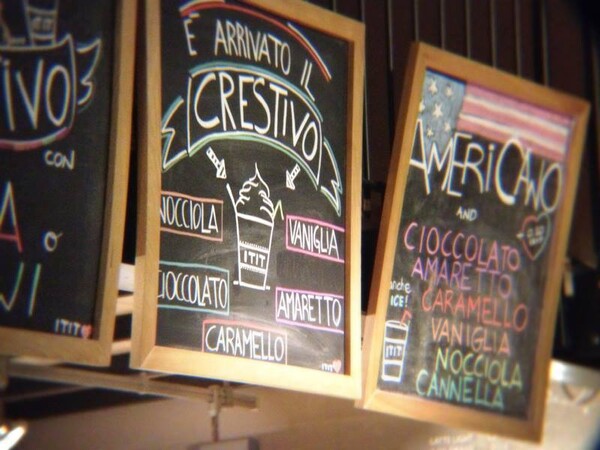 TIVO
CON
A o
VI
ITIT
È ARRIVATO IL
CRESTIVO
NOCCIOLA
VANIGLIA
ITIT
CIOCCOLATO
AMARETTO
CARAMELLO
AMERICANO
AND
CIOCCOLATO
AMARETTO
anche
ICE!
CARAMELLO
VANIGLIA
ITIT
NOCCIOLA
CANNELLA